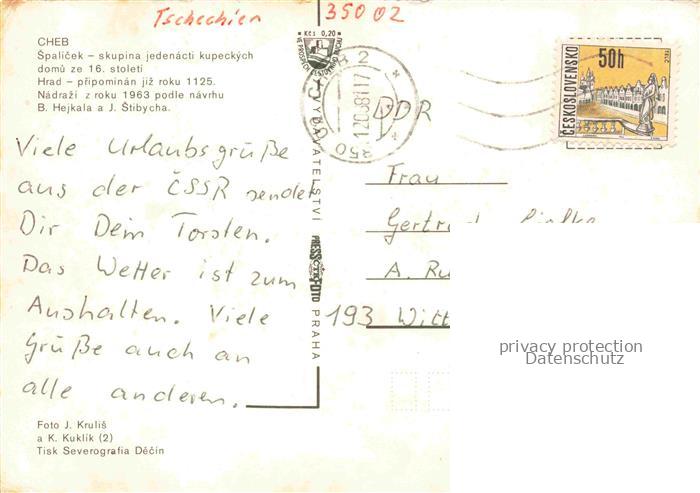 Tschechien 35002
CHEB
Špalíček – skupina jedenácti kupeckých
domů ze 16. století
Hrad – připomínán již roku 1125.
Nádraží z roku 1963 podle návrhu
B. Hejkala a J. Štibycha.
Viele Urlaubsgrüße
aus der ČSSR sendet
Dir Dein Torsten.
Das Wetter ist zum
Aushalten. Viele
Grüße auch an
alle anderen.
Foto J. Kruliš
a K. Kuklík (2)
Tisk Severografia Děčín
Kčs 0,20
VYDAVATELSTVÍ
PRESSFOTO
PRAHA
ČESKOSLOVENSKO
50h
DDR
Frau
A.
193
privacy protection
Datenschutz